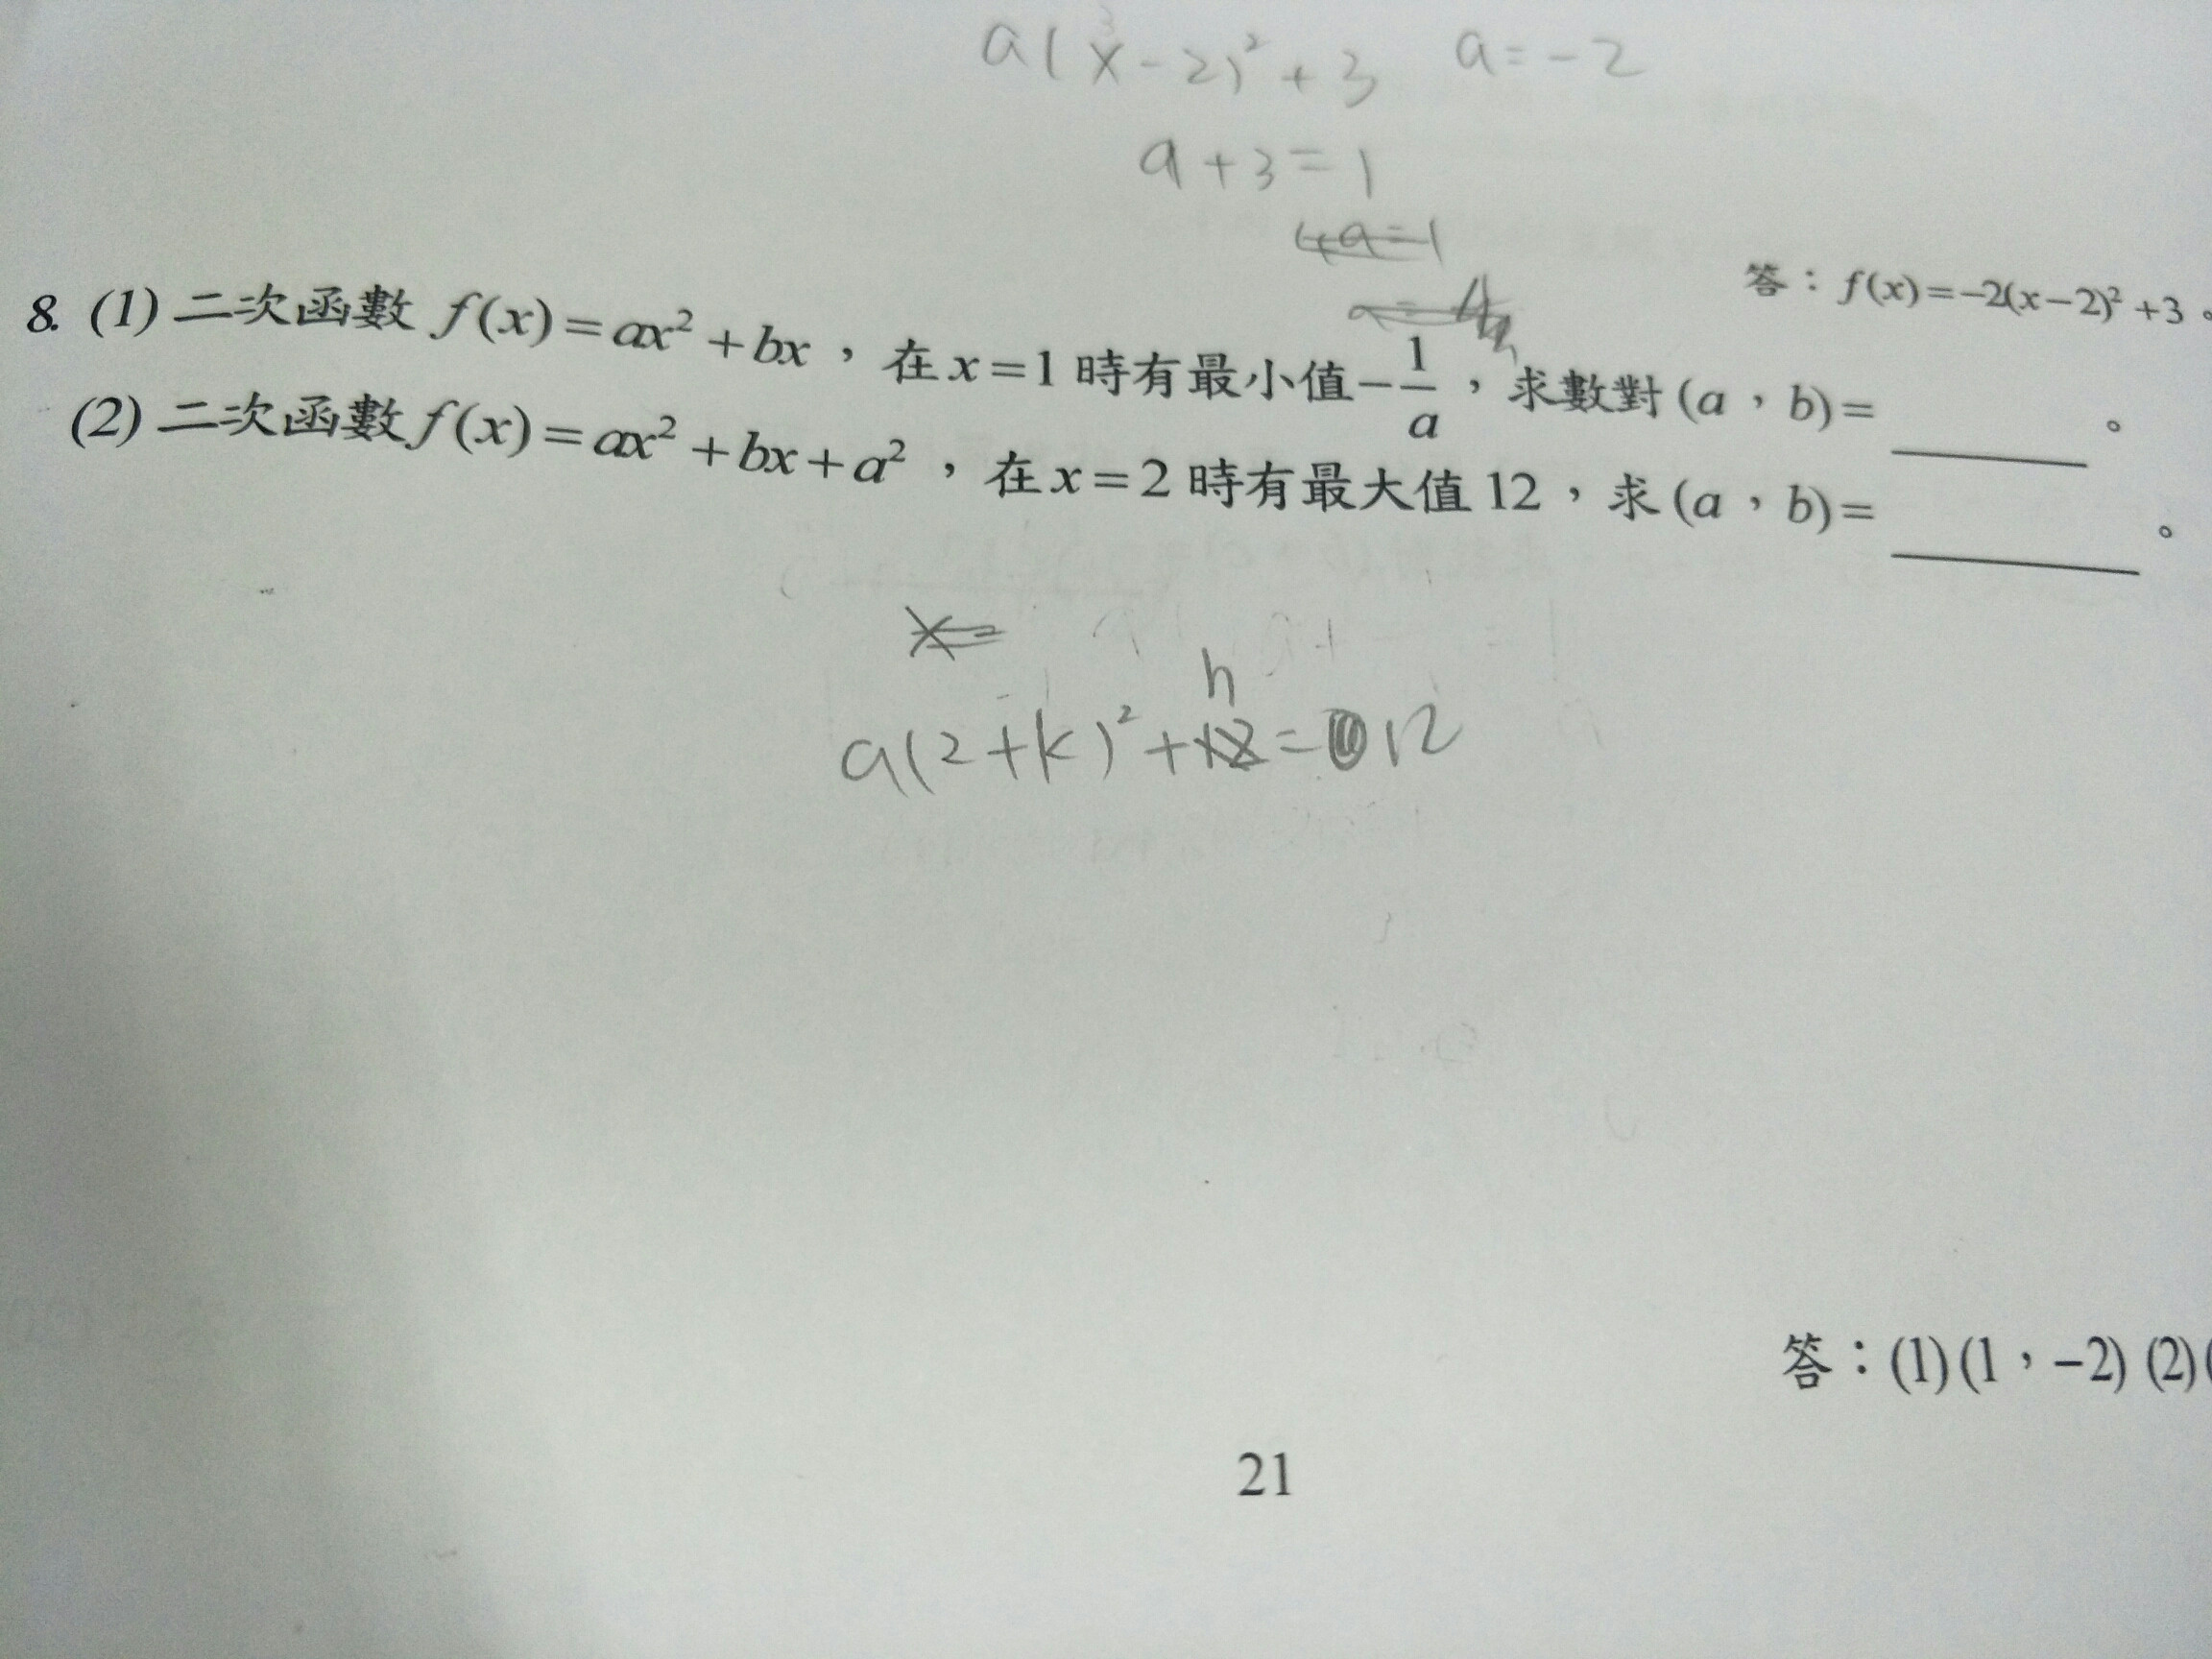 a(x-2)²+3 a=-2
a+3=1
4a=1
答：f(x)=-2(x-2)²+3。
8. (1) 二次函數 f(x)=ax²+bx，在 x=1 時有最小值 -1/a，求數對 (a，b)= ______。
(2) 二次函數 f(x)=ax²+bx+a²，在 x=2 時有最大值 12，求 (a，b)= ______。
x=
h
a(2+k)²+12=12
答：(1)(1，-2) (2)(
21